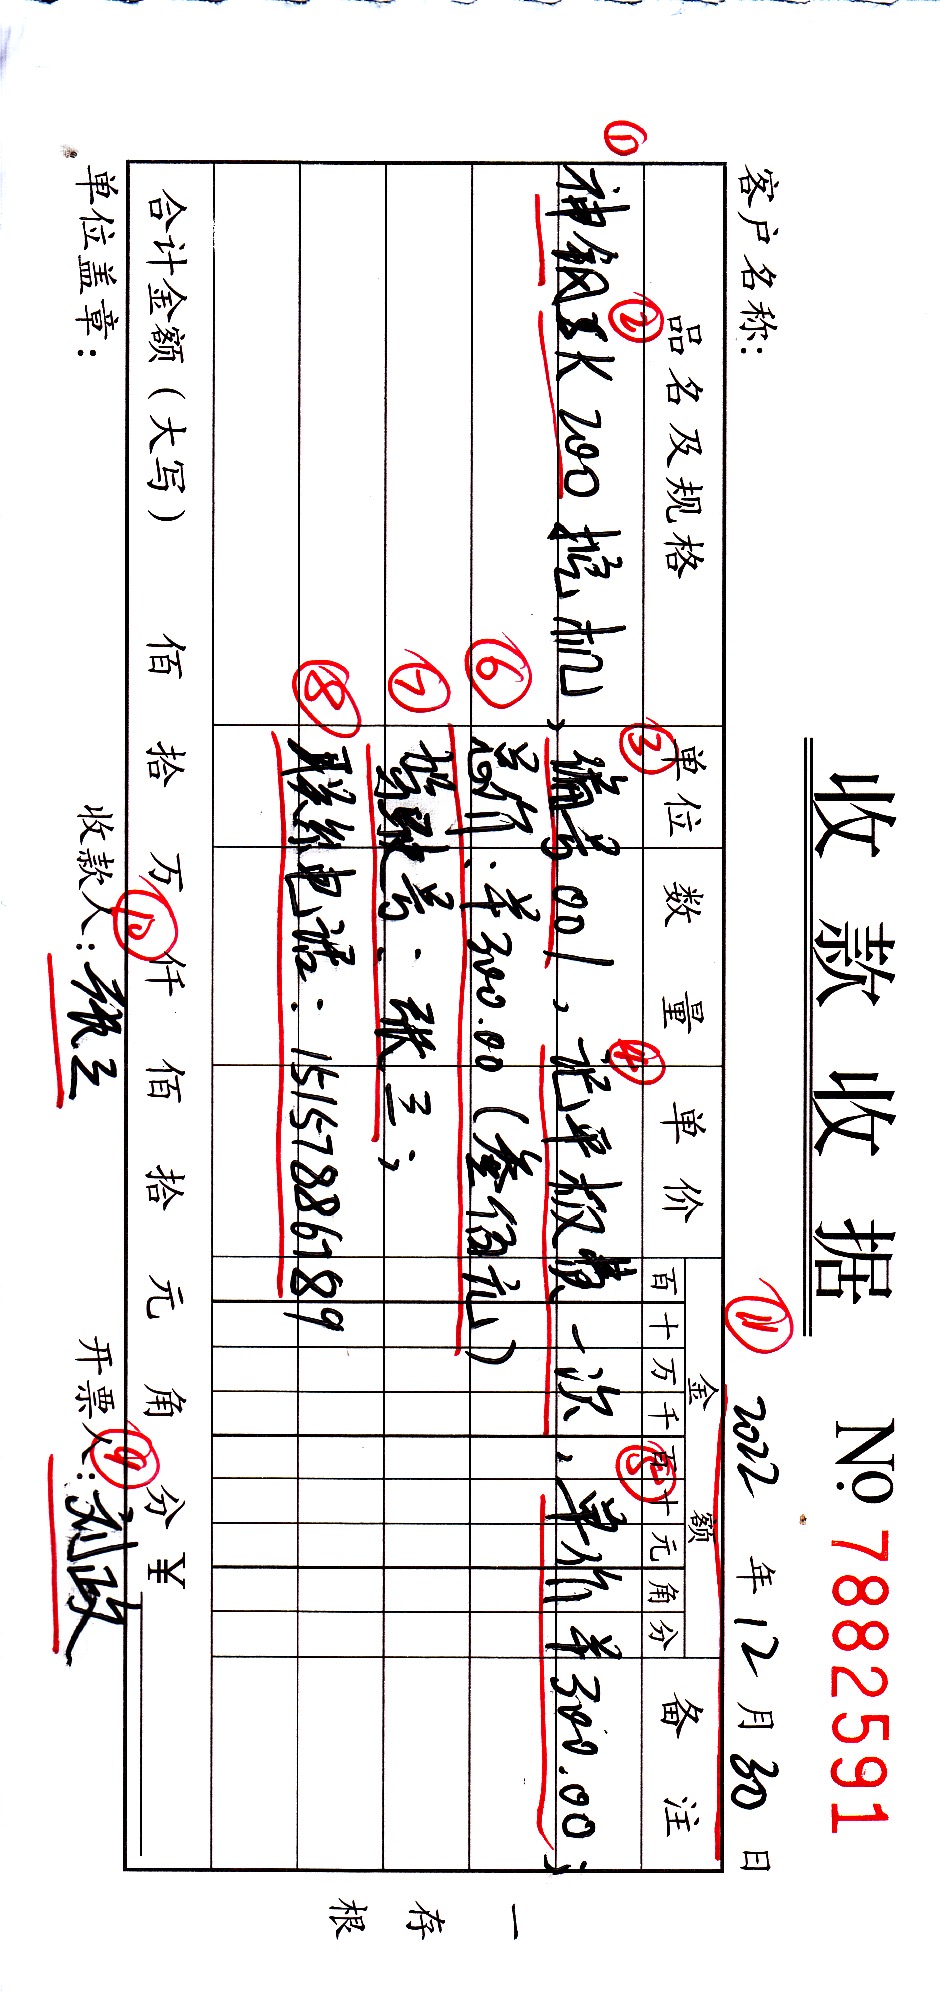 收款收据 No 7882591
客户名称： ⑪ 2022 年 12 月 30 日
品名及规格 单位 数量 单价 金额 备注
百 十 万 千 百 十 元 角 分
① ② ③ ④ ⑤
神钢SK200挖机，编号001，记平板费一次，单价￥300.00；
⑥ 总价：￥300.00（叁佰元）
⑦ 驾驶号：张三；
⑧ 联系电话：15157886789
合计金额（大写） 佰 拾 万 仟 佰 拾 元 角 分 ￥
单位盖章： 收款人： ⑩ 张三 开票人： ⑨ 刘政
一存根